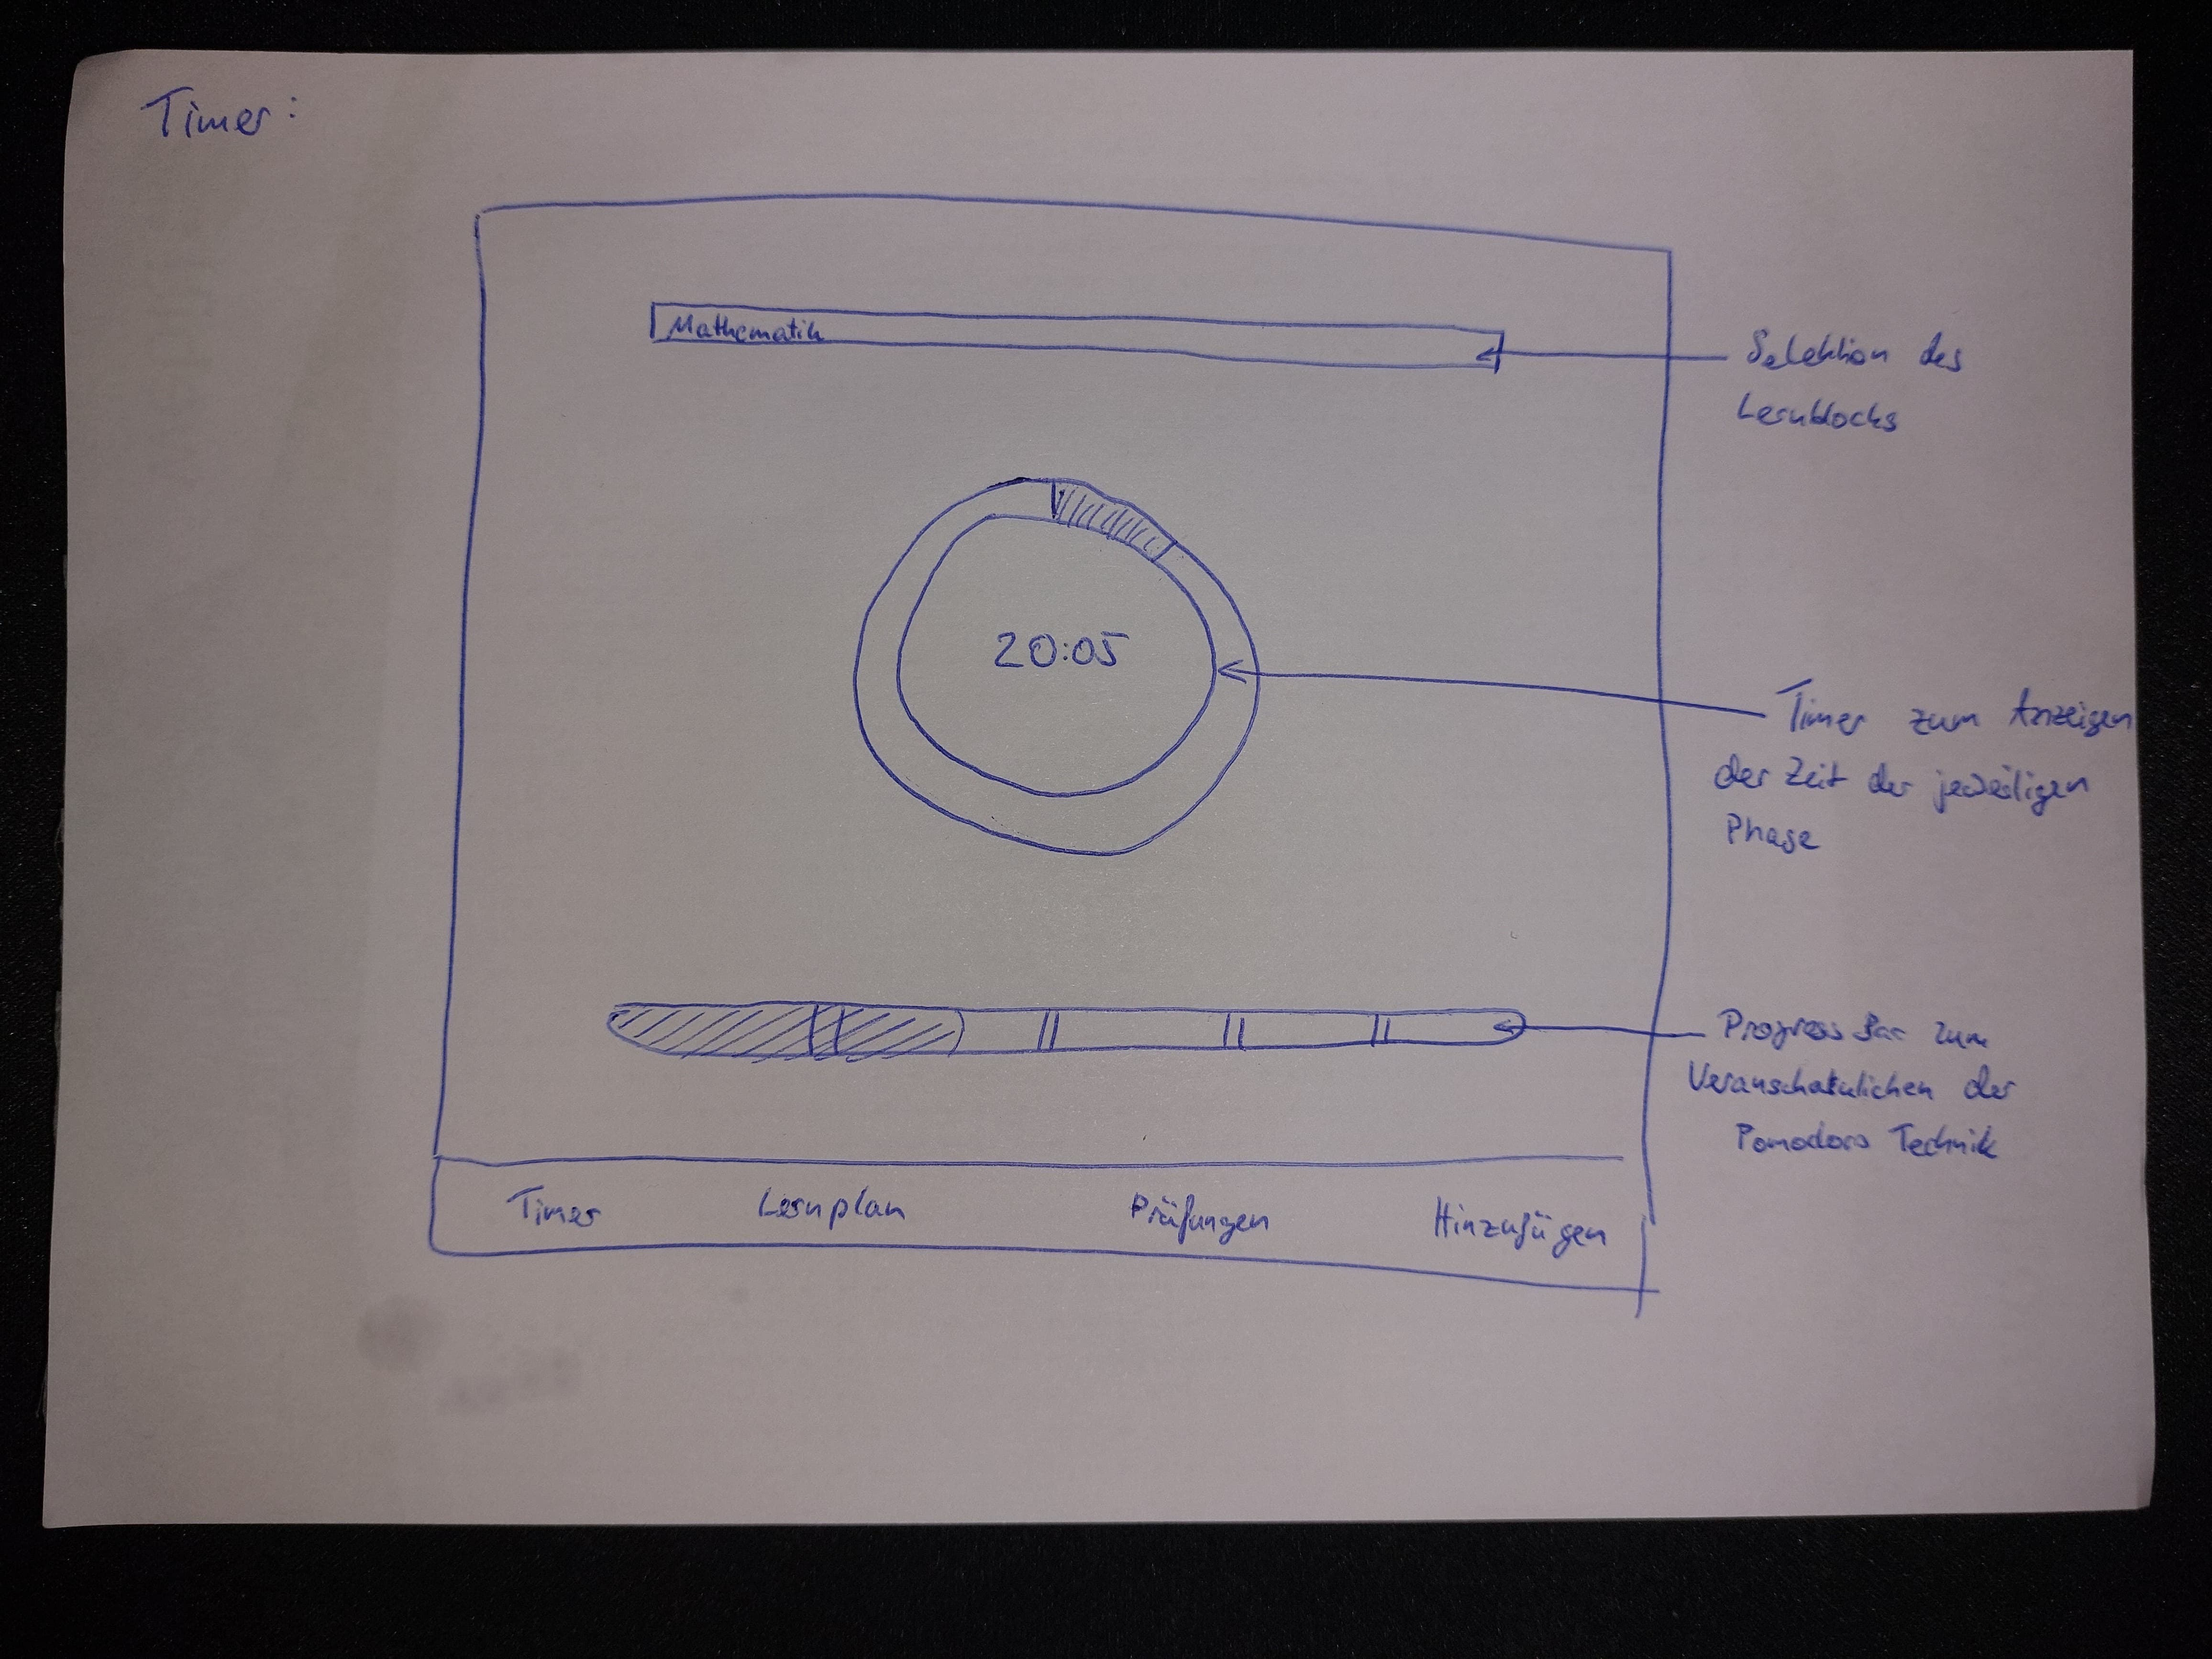 Timer:
Mathematik
Selektion des
Lernblocks
20:05
Timer zum Anzeigen
der Zeit der jeweiligen
Phase
Progress Bar zum
Veranschaulichen der
Pomodoro Technik
Timer Lernplan Prüfungen Hinzufügen